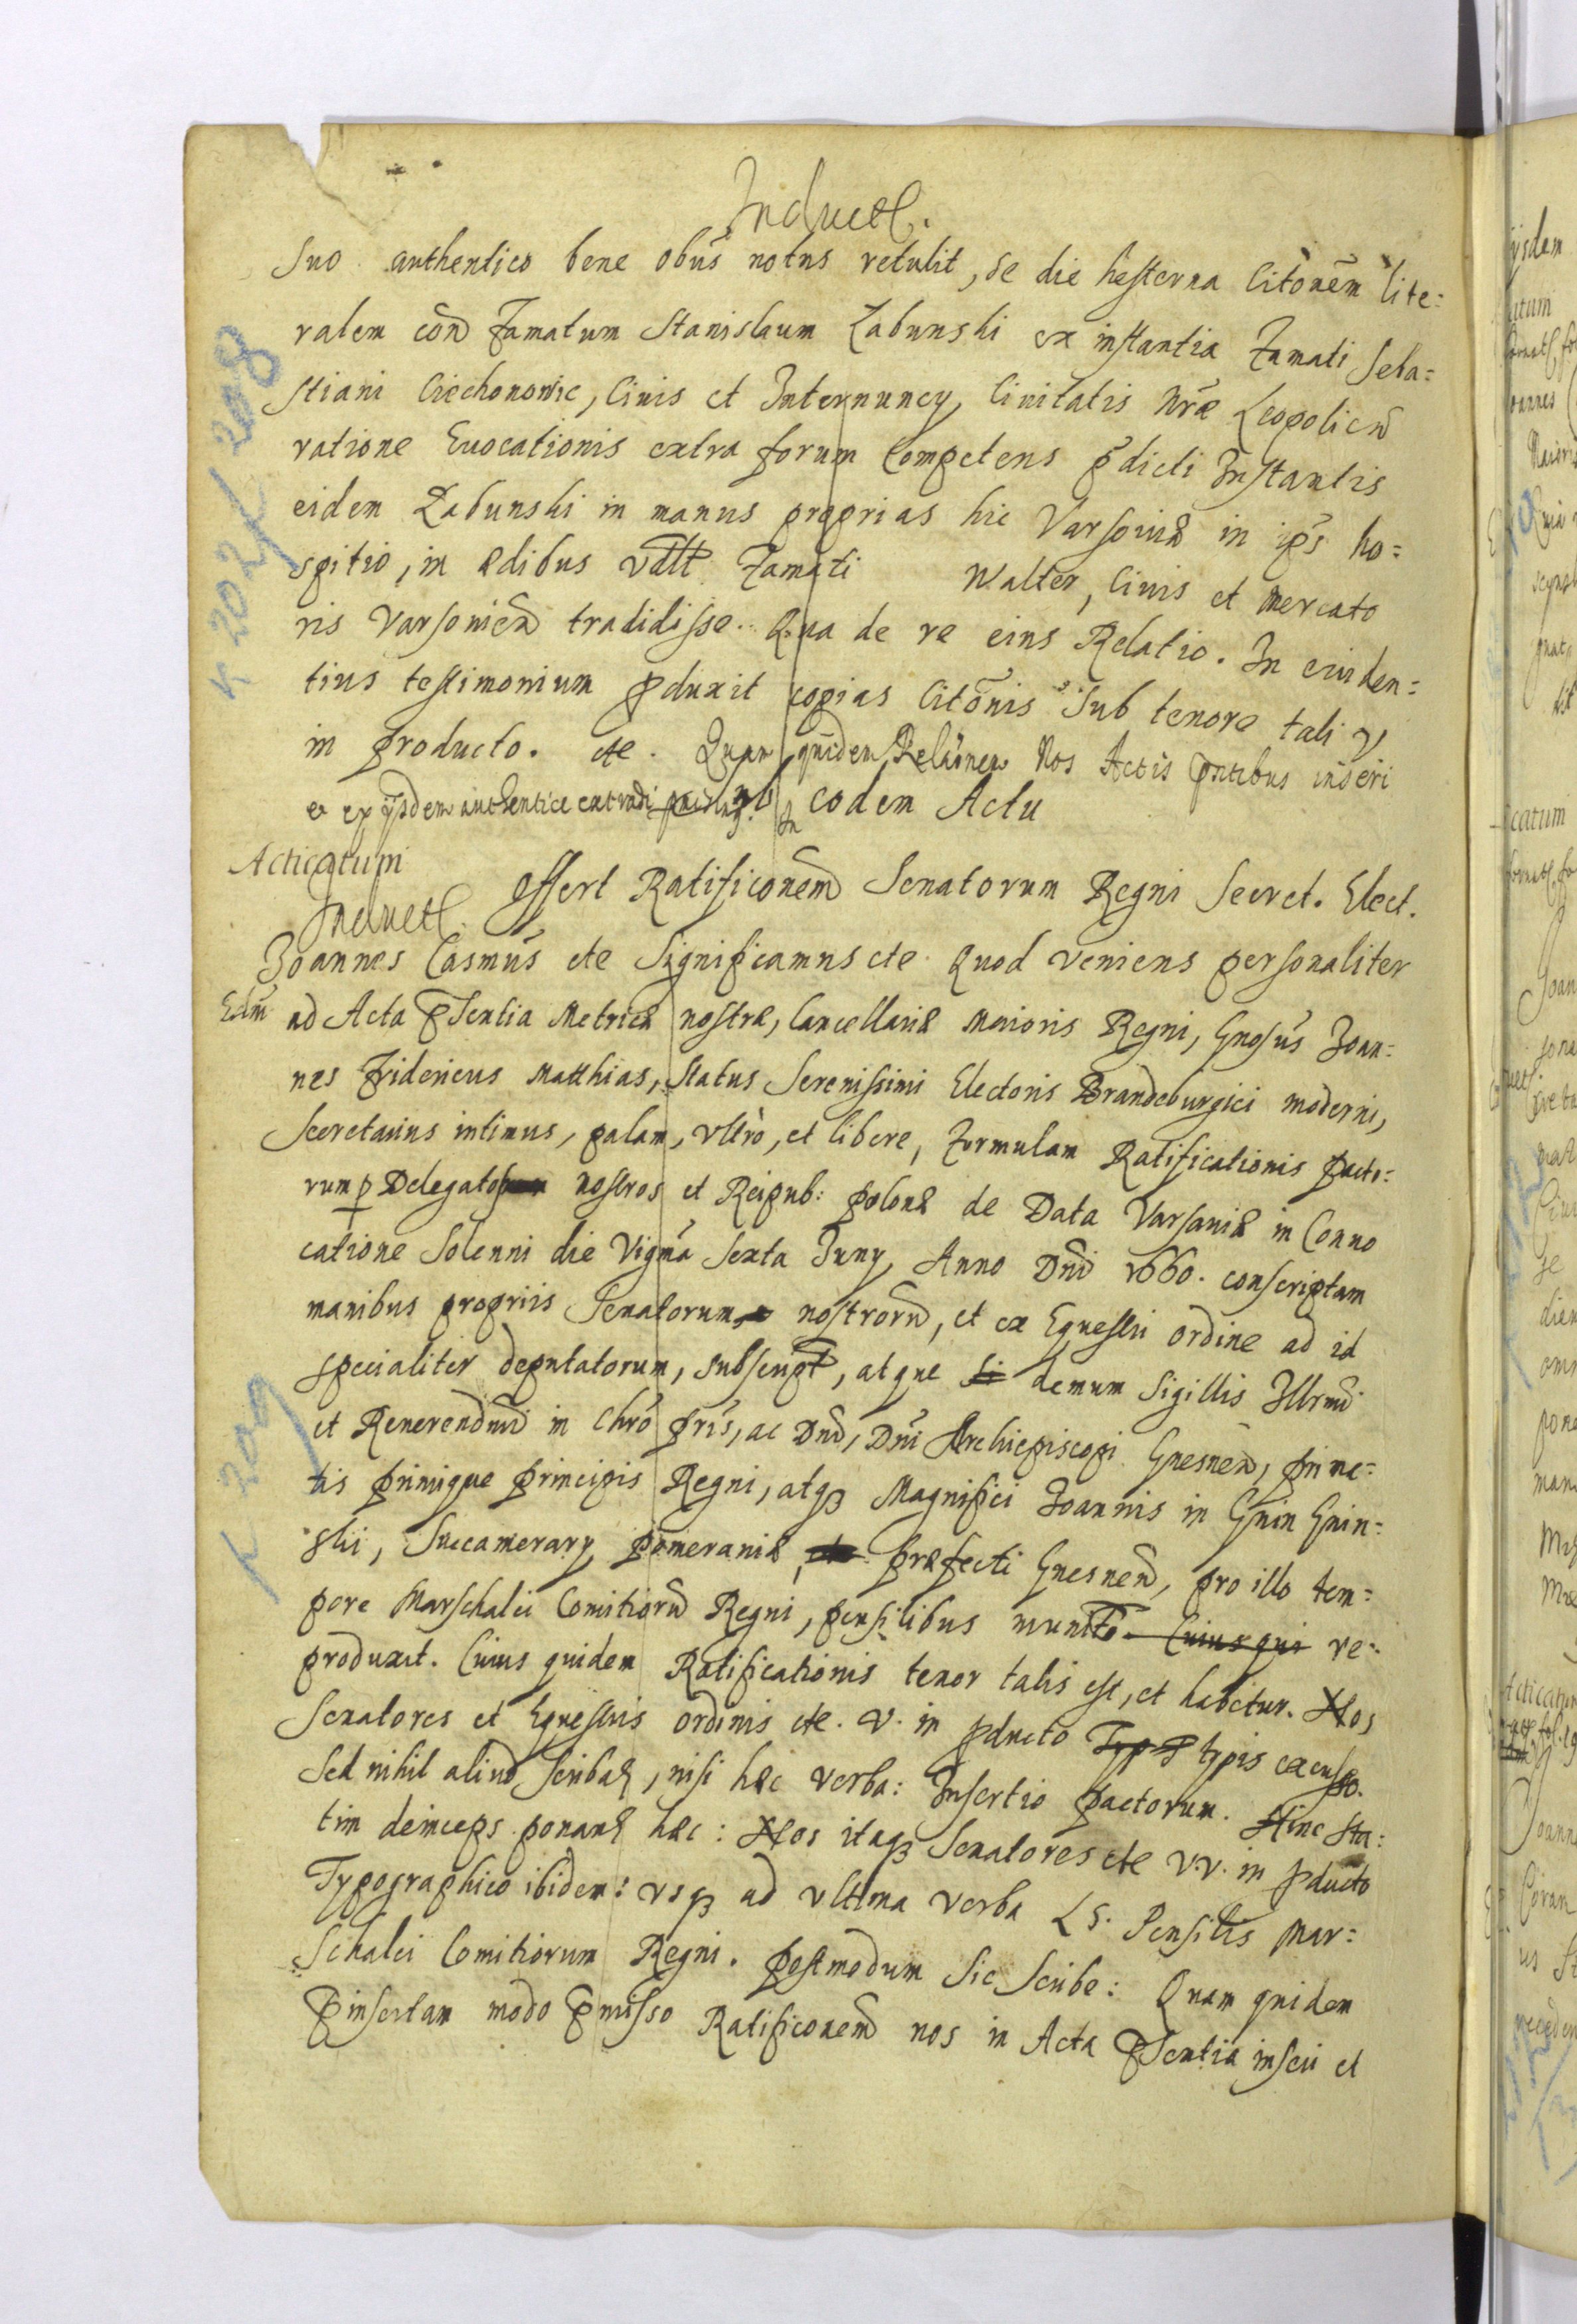 Induct.
Suo authentico bene obūs notus retulit, se die hesterna Citōnēm lite=
ralem con̄ Famatum Stanislaum Łabunski ex instantia Famati Seba=
stiani Ciechonowic, Ciuis et Internuncÿ, Ciuitatis Nr̄æ Leopolien̄
ratione Euocationis extra forum Competens p̄dicti Instantis
eidem Łabunski in manus proprias hic Varsouiæ in ip̄s ho=
spitio, in ædibus Famati Walter, Ciuis et Mercato
ris Varsouien̄ tradidisse. Qua de re eius Relatio. In euiden=
tius testimonium pduxit copias Citōnis Sub tenore tali V
in producto. etc. Quam quidem Relãonem Nos Actis pn̄tibus inseri
et ex ijsdem authentice extradi
In eodem Actu
Acticatum
offert Ratificonem̄ Senatorum Regni Secret. Elect.
Induct.
Joannes Casmūs etc Significamus etc Quod veniens personaliter
ad Acta pSentia Metricæ nostræ, Cancellariæ Maioris Regni, Gnosūs Joan=
nes Fridericus Matthias, Status Serenissimi Electoris Brandeburgici moderni,
Secretarius intimus, palam, vltrò, et libere, Formulam Ratificationis pacto=
rum p Delegatos nostros et Reipub: polonæ de Data Varsauiæ in Conuo
catione Solenni die Vigm̄a Sexta Junÿ Anno Dni 1660. conscriptam
manibus propriis Senatorum nostrorū, et ex Equestri ordine ad id
specialiter deputatorum, subscript, atque Si demum Sigillis Illrmi
et Reuerendmi in Chrō pris, ac Dnī, Dni Archiepiscopi Gnesnen̄, prima=
tis primique principis Regni, atqꝫ Magnifici Joannis in Gnin Gnin=
ski, Succamerarÿ pomeraniæ, præfecti Gnesnen̄, pro illo tem=
pore Marschalci Comitiorū Regni, pensilibus munitō Cuius qui re=
produxit. Cuius quidem Ratificationis tenor talis est, et habetur. Nos
Senatores et Equestris ordinis etc. V. in pducto Typ typis excuso.
Sed nihil aliud Scribas, nisi hæc verba: Insertio pactorum. Hinc sta=
tim deinceps ponant hæc: Nos itaqꝫ Senatores etc V.V. in pducto
Typographico ibidem: vsqꝫ ad vltima verba LS. Pensilis Mar=
schalci Comitiorum Regni. Postmodum Sic Scribe: Quam quidem
pinsertam modo pmisso Ratificonem̄ nos in Acta pSentia inseri et
K 207/208
K 209